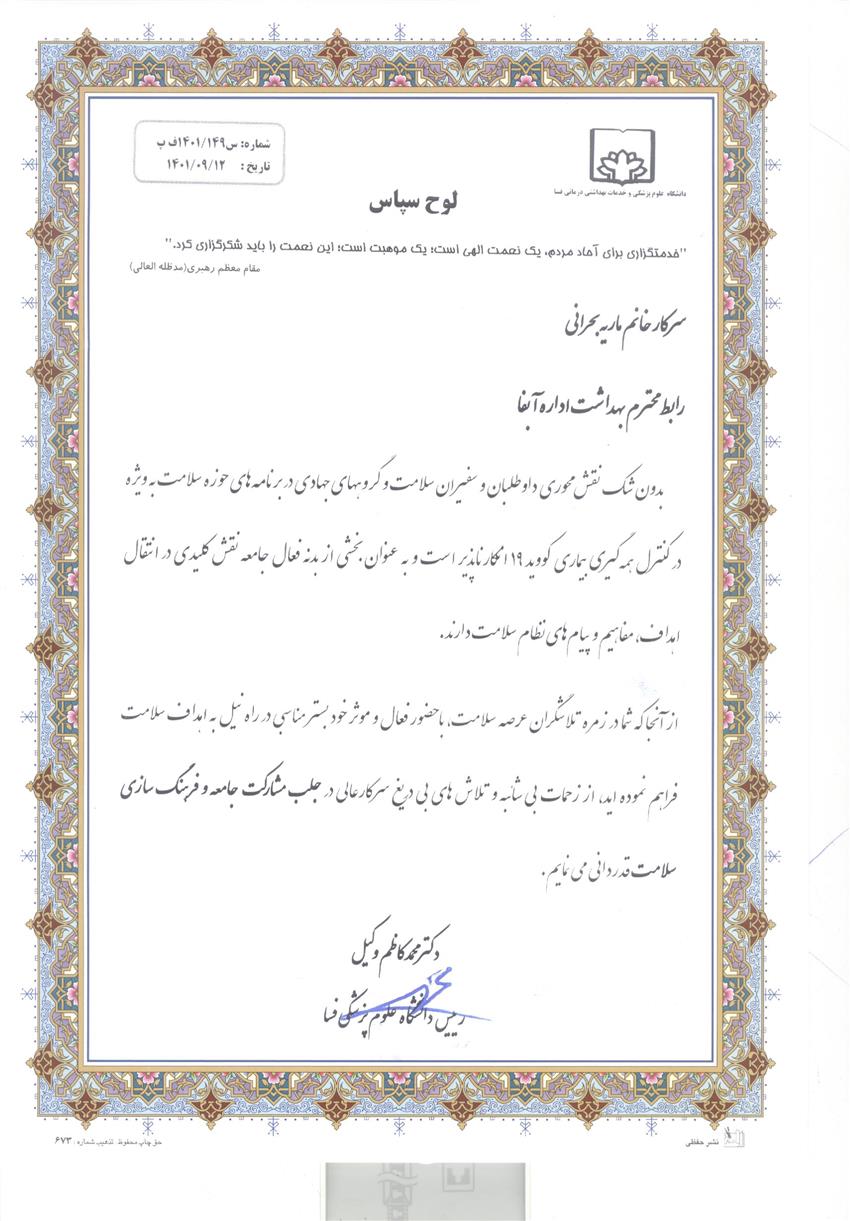 شماره: س۱۴۰۱/۱۴۹ف ب
تاریخ: ۱۴۰۱/۰۹/۱۲
دانشگاه علوم پزشکی و خدمات بهداشتی درمانی فسا
لوح سپاس
"خدمتگزاری برای آحاد مردم، یک نعمت الهی است؛ یک موهبت است؛ این نعمت را باید شکرگزاری کرد."
مقام معظم رهبری(مدظله العالی)
سرکار خانم ماریه بحرانی
رابط محترم بهداشت اداره آبفا
بدون شک نقش محوری داوطلبان و سفیران سلامت و گروههای جهادی در برنامه های حوزه سلامت به ویژه
در کنترل همه گیری بیماری کووید ۱۹ انکار ناپذیر است و به عنوان بخشی از بدنه فعال جامعه نقش کلیدی در انتقال
اهداف، مفاهیم و پیام های نظام سلامت دارند.
از آنجا که شما در زمره تلاشگران عرصه سلامت، با حضور فعال و موثر خود بستر مناسبی در راه نیل به اهداف سلامت
فراهم نموده اید، از زحمات بی شائبه و تلاش های بی دریغ سرکارعالی در جلب مشارکت جامعه و فرهنگ سازی
سلامت قدردانی می نمایم.
دکتر محمد کاظم وکیل
رییس دانشگاه علوم پزشکی فسا
نشر حفظی
حق چاپ محفوظ. تذهیب شماره: ۶۷۳